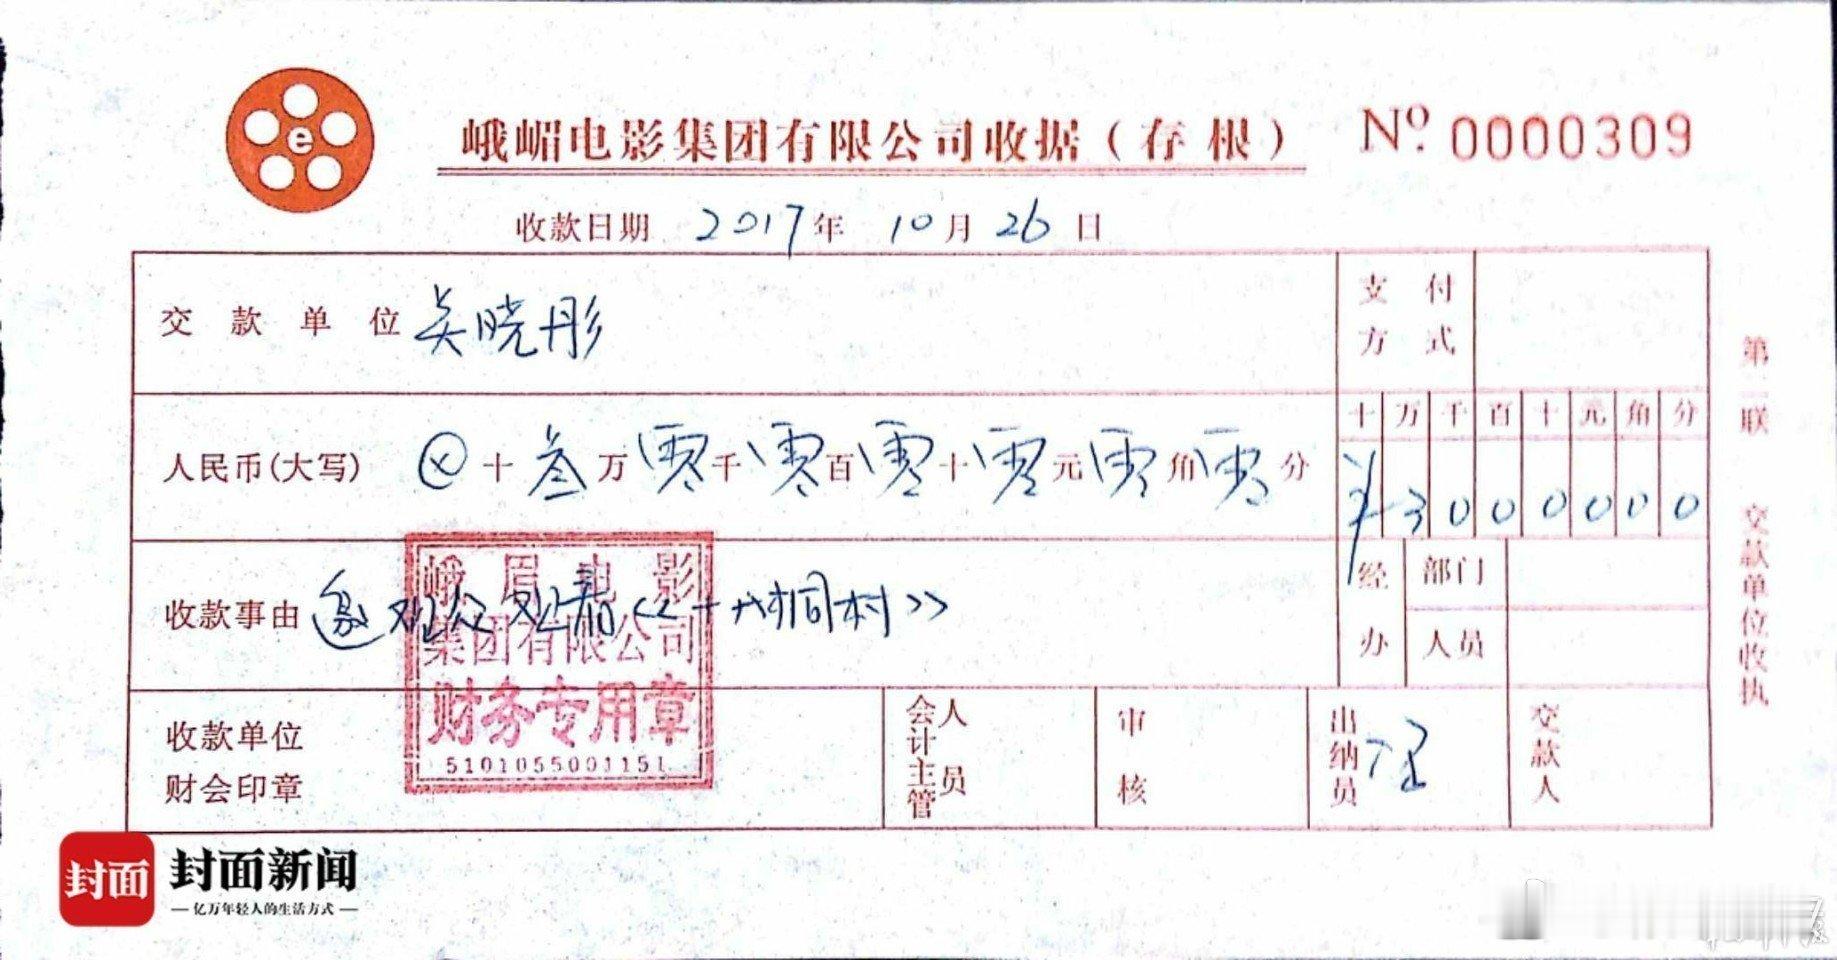 峨嵋电影集团有限公司收据（存根） Nº 0000309
收款日期 2017年 10月 26日
交款单位 吴晓彤
支付方式
人民币(大写) ⊗十叁万零千零百零十零元零角零分
十万千百十元角分
¥3000000
收款事由 邀观众观看《十八洞村》
经办
部门
人员
峨眉电影
集团有限公司
财务专用章
5101055001151
收款单位
财会印章
会计主管
人员
审核
出纳员
交款人
第一联 交款单位收执
e
封面
封面新闻
—亿万年轻人的生活方式—